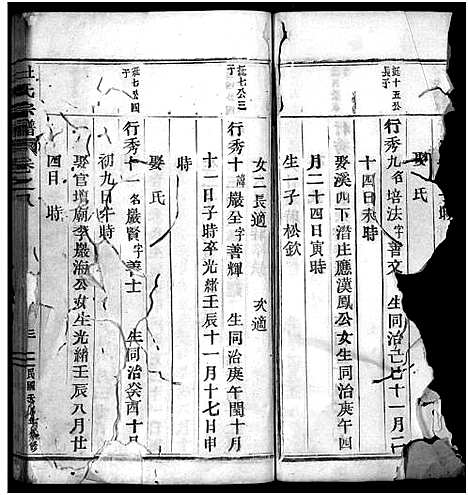 娶氏
延十五公
長子
行秀九名培法字善文 生同治己巳十一月二
十四日未時
娶溪四下潛庄應漢鳳公女生同治庚午四
月二十四日寅時
生一子 松欽
女二長適 次適
廷七公三
子
行秀十諱嚴至字善輝 生同治庚午閏十月
十一日子時卒光緒壬辰十一月十七日申
時
娶氏
廷七公四
子
行秀十一名嚴賢字善士 生同治癸酉十月
初九日午時
娶官壇廟李嚴海公女生光緒壬辰八月廿
四日 時
氏宗譜 卷之八
三
民國